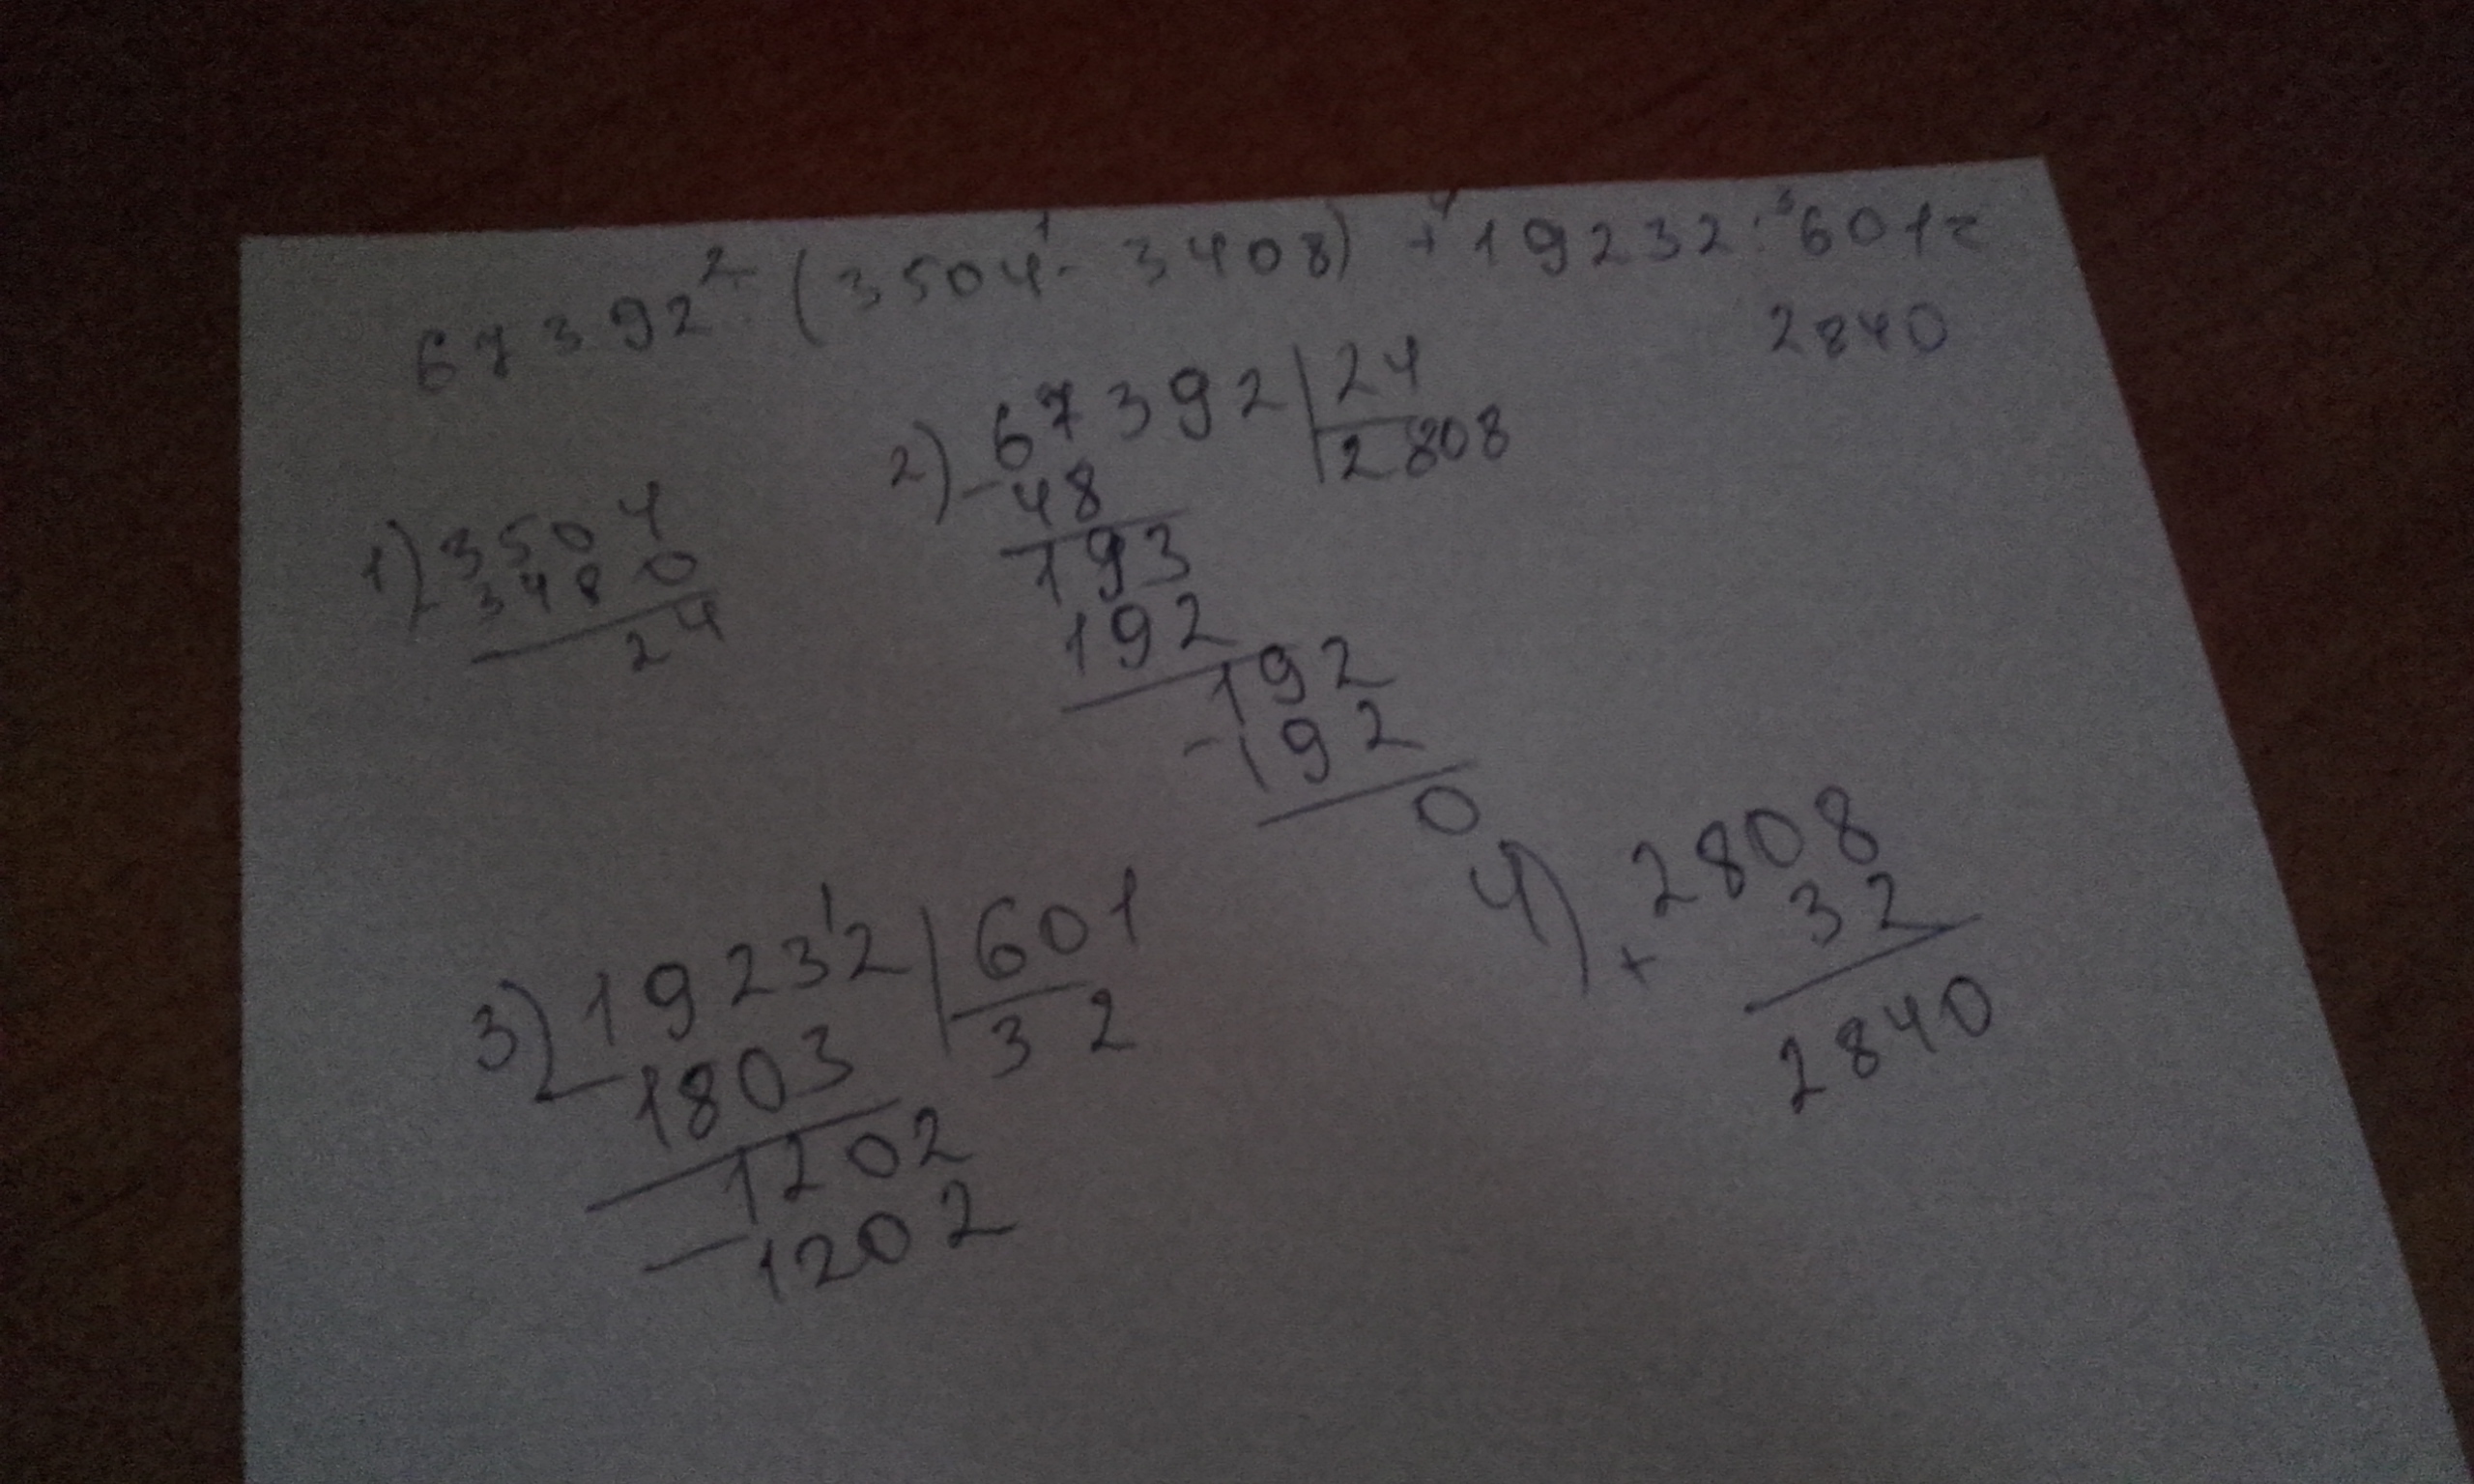 67392 : (3504 - 3408) + 19232 : 601 =
2840
1) 3504
3480
24
2) - 67392 | 24
48 2808
193
192
192
- 192
0
3) - 19232 | 601
1803 32
1202
- 1202
4) 2808
+ 32
2840